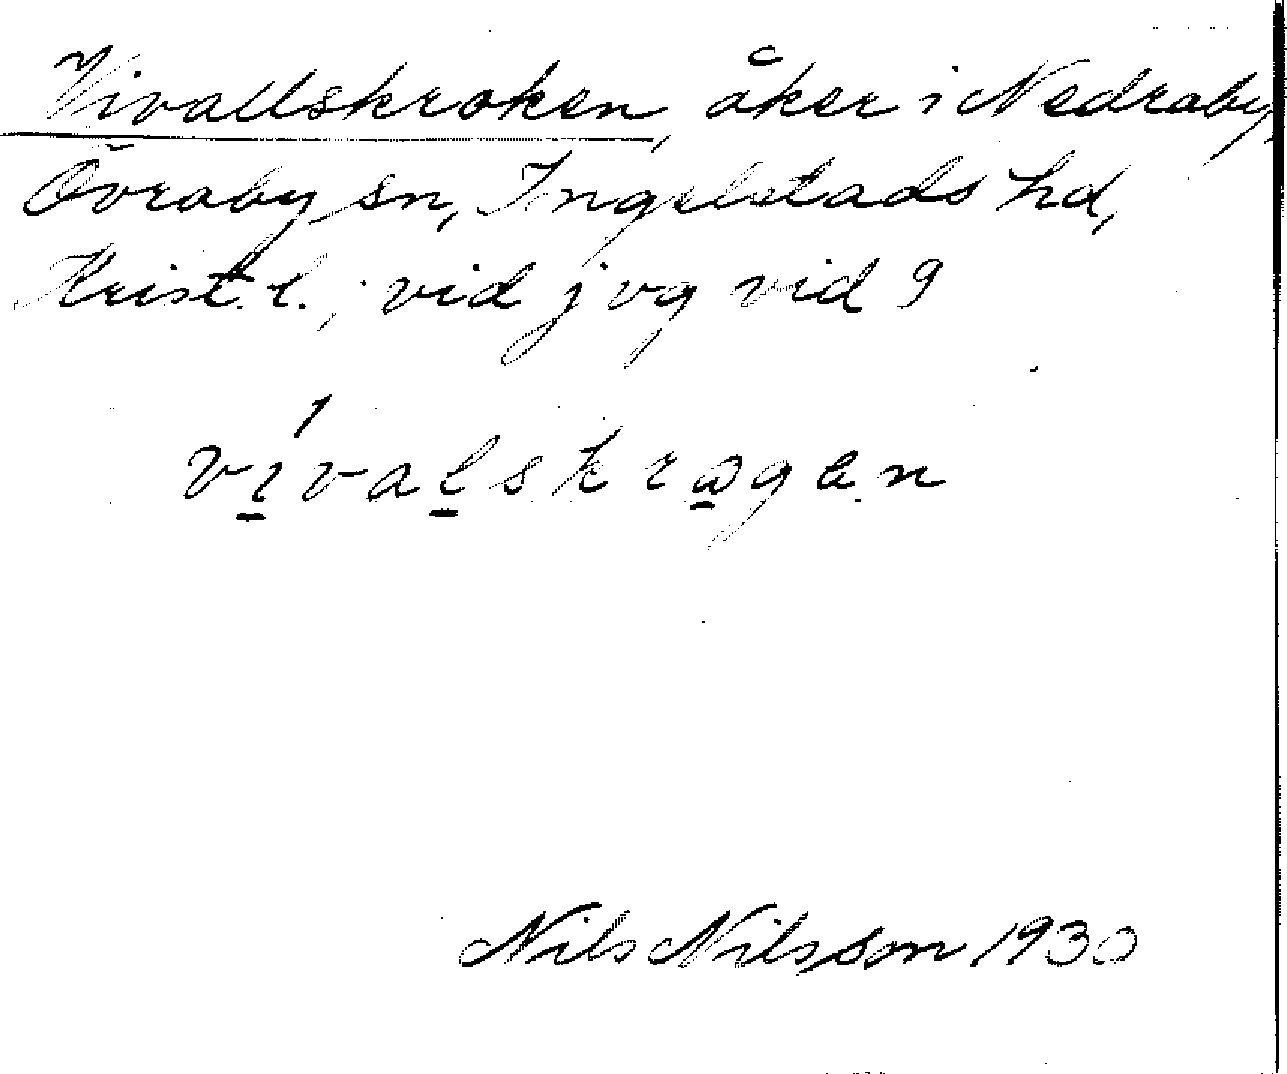 Vivallskroken, åker i Nedraby,
Övraby sn, Ingelstads hd,
Krist. l.; vid jvg vid 9
vı́valskrogen
Nils Nilsson 1930